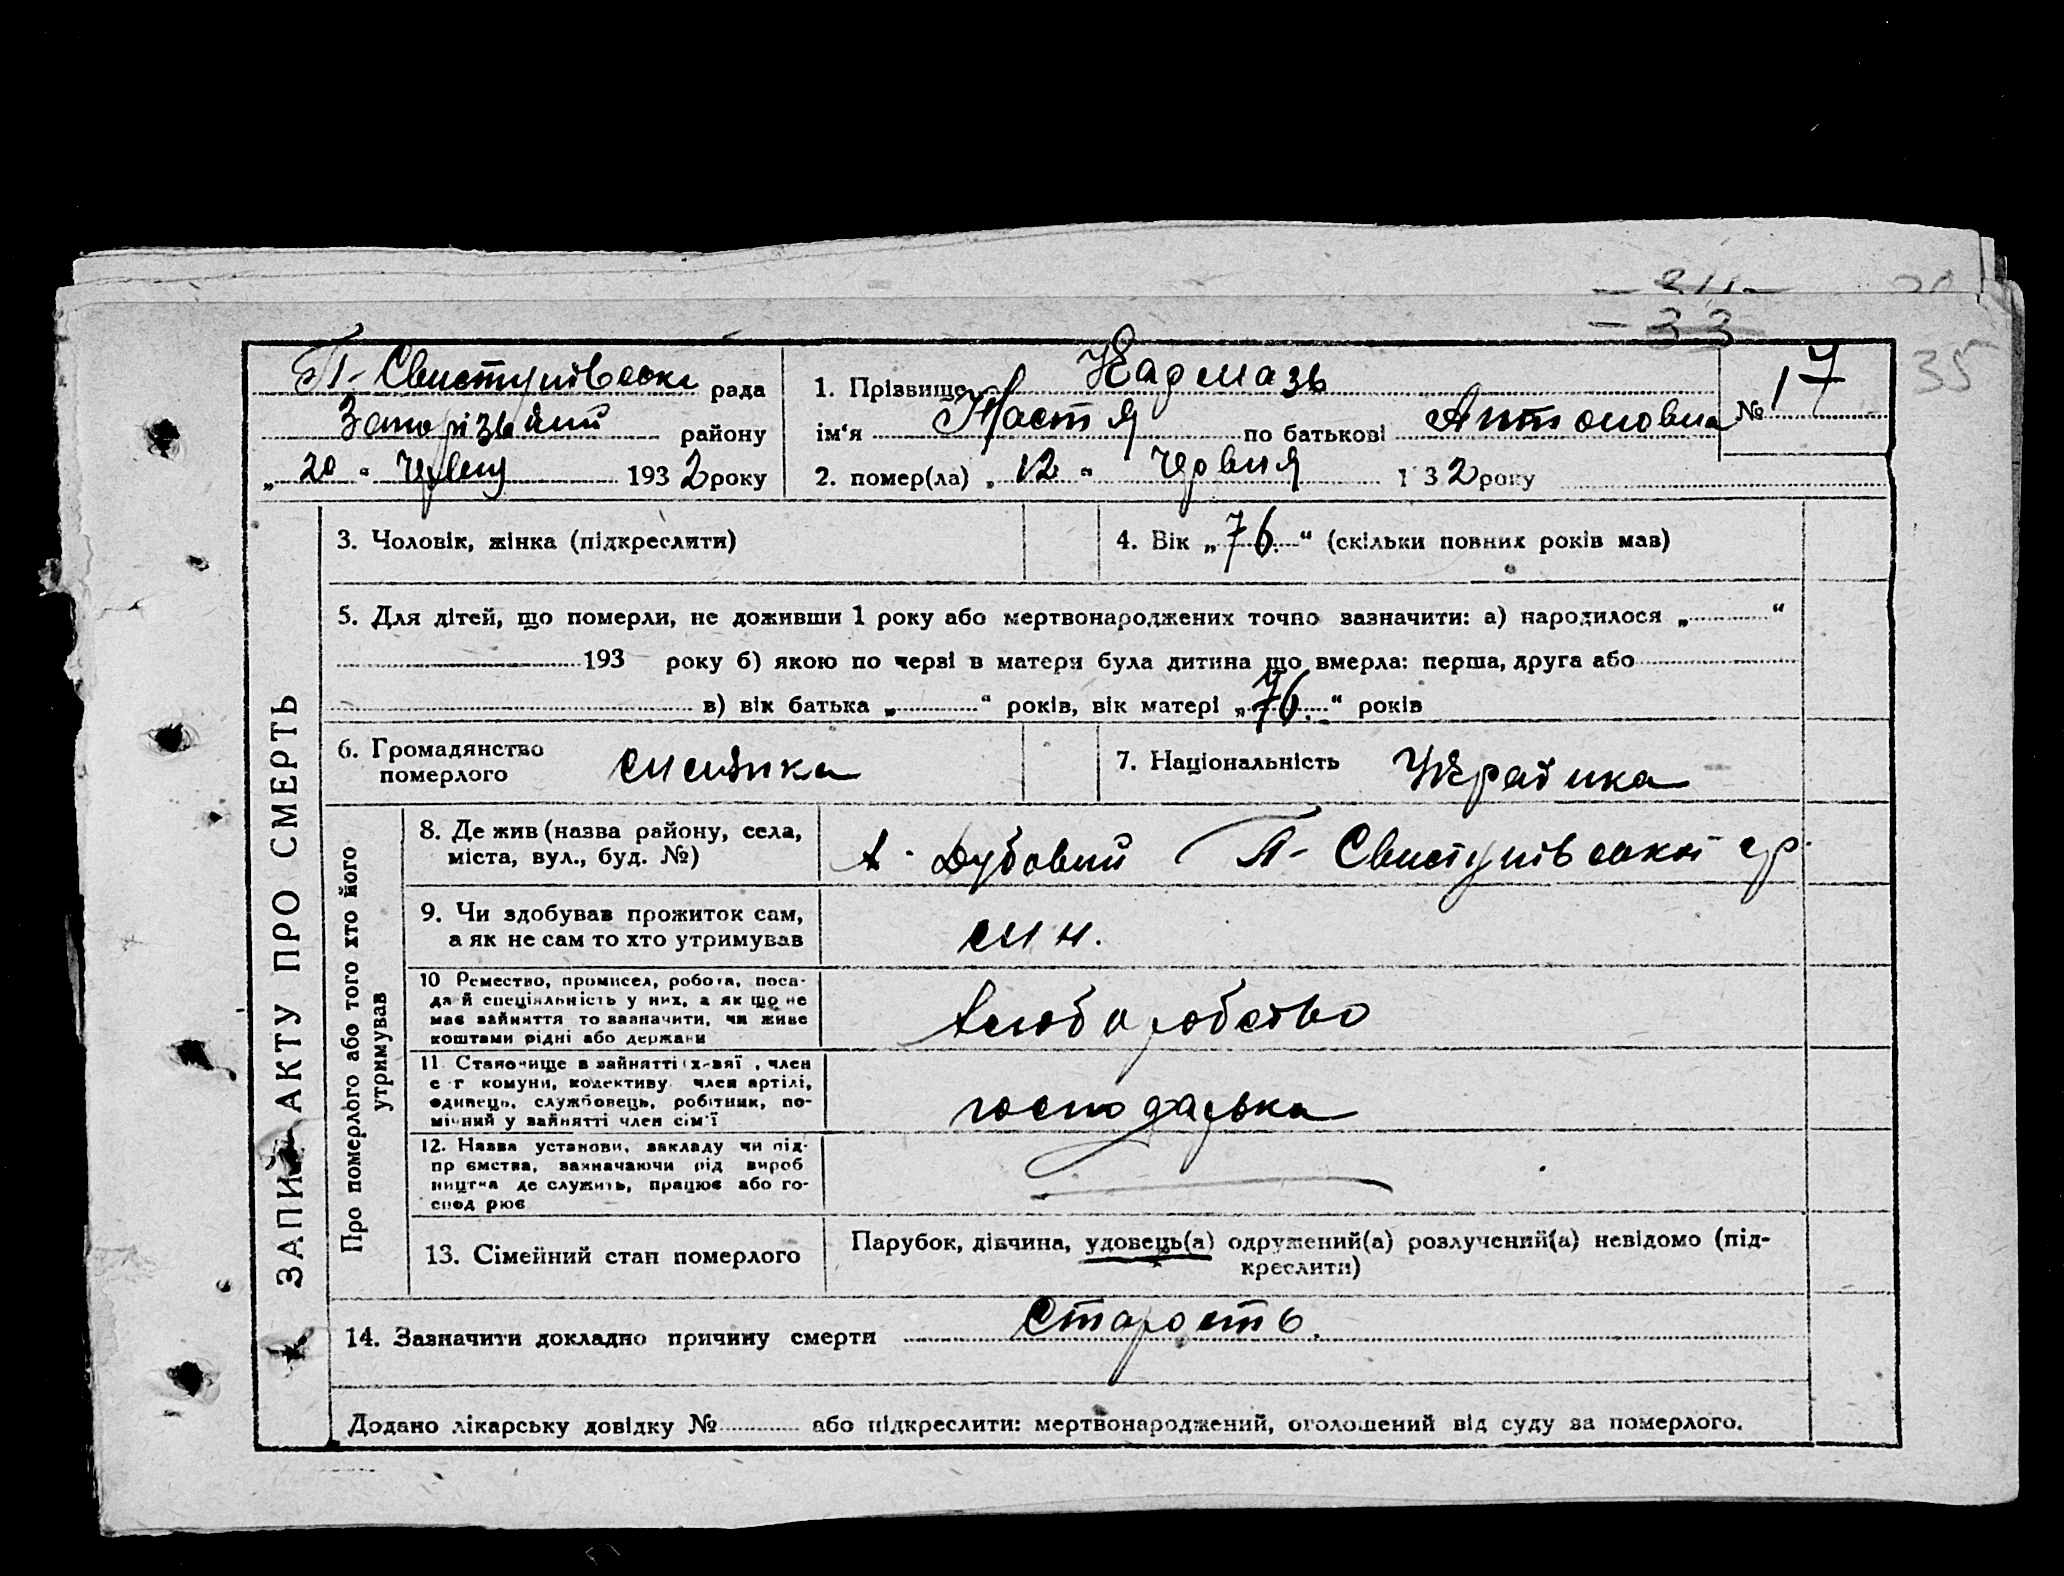 - 33
35
П-Свистунівська рада
Запорізький району
„ 20 “ Червня 1932 року
1. Прізвище Кармазь
імʼя Настя по батькові Антоновна
№ 17
2. помер(ла) „ 12 “ Червня 1932 року
ЗАПИС АКТУ ПРО СМЕРТЬ
3. Чоловік, жінка (підкреслити)
4. Вік „ 76 “ (скільки повних років мав)
5. Для дітей, що померли, не доживши 1 року або мертвонароджених точно зазначити: а) народилося „ “
193 року б) якою по черві в матери була дитина що вмерла: перша, друга або
в) вік батька „ “ років, вік матері „ 76. “ років
6. Громадянство
померлого
7. Національність Украінка
Про померлого або того хто його
утримував
8. Де жив (назва району, села,
міста, вул., буд. №)
Дубовий П-Свистунівської ср.
9. Чи здобував прожиток сам,
а як не сам то хто утримував
син.
10 Ремество, промисел, робота, поса-
да й спеціяльність у них, а як що не
має зайняття то зазначити, чи живе
коштами рідні або держави
хлюборобство
11. Становище в зайнятті (х-зяї , член
с-г комуни, колективу член артілі,
одинець, службовець, робітник, по-
мічний у зайнятті член сімʼї
господарька
12. Назва установи, закладу чи під-
пр ємства, зазначаючи рід вироб
ництва де служить, працює або го-
спод рює
13. Сімейний стан померлого
Парубок, дівчина, удовець(а) одружений(а) розлучений(а) невідомо (під-
креслити)
14. Зазначити докладно причину смерти старость.
Додано лікарську довідку № або підкреслити: мертвонароджений, оголошений від суду за померлого.